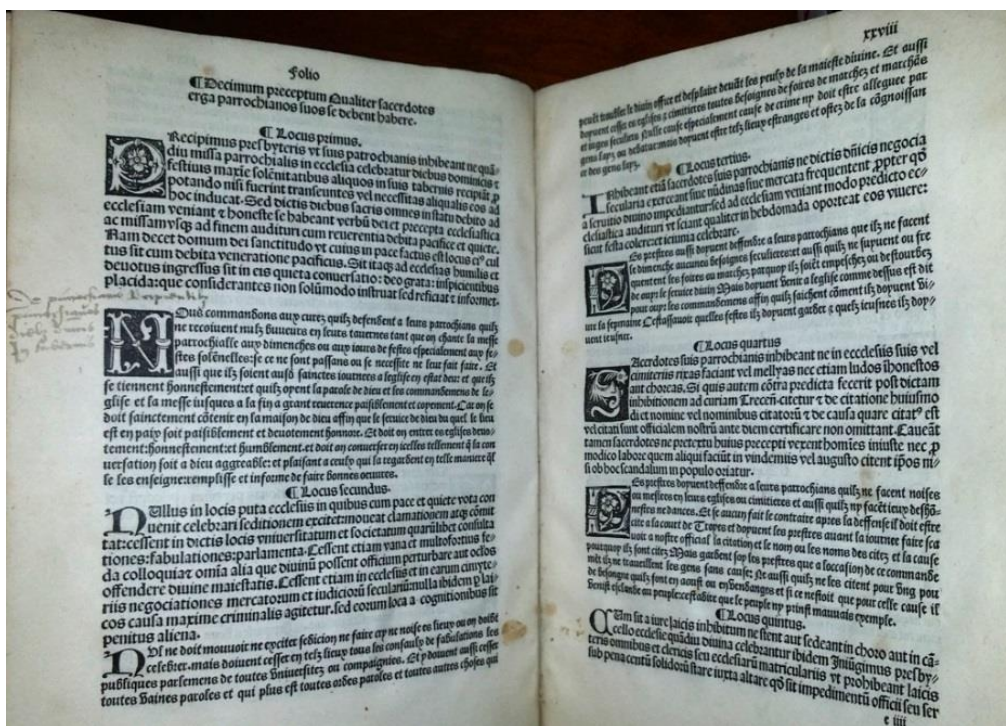 Folio
¶ Decimum preceptum Qualiter sacerdotes
erga parrochianos suos se debent habere.
¶ Locus primus.
PRecipimus presbyteris vt suis parrochianis inhibeant ne quā
diu missa parrochialis in ecclesia celebratur diebus dominicis ⁊
festiuis maxie solēnitatibus aliquos in suis tabernis recipiāt ꝓ
potando nisi fuerint transeuntes vel necessitas aliqualis eos ad
hoc inducat. Sed dictis diebus sacris omnes in statu debito ad
ecclesiam veniant ⁊ honeste se habeant verbū dei et precepta ecclesiastica
ac missam vsqꝫ ad finem audituri cum reuerentia debita pacifice et quiete.
Nam decet domum dei sanctitudo vt cuius in pace factus est locus eiꝰ cul
tus sit cum debita veneratione pacificus. Sit itaqꝫ ad ecclesias humilis et
deuotus ingressus sit in eis quieta conuersatio: deo grata: inspicientibus
placida: que considerantes non solūmodo instruat sed reficiat ⁊ informet.
NOus commandons aux curez quilꝫ defendent a leurs parrochians quilꝫ
ne recoiuent nulꝫ buueurs en leurs tauernes tant que on chante la messe
parrochialle aux dimenches ou aux iours de festes especialement aux fe-
stes solēnelles: se ce ne sont passans ou se necessite ne leur fait faire. Et
aussi que ilꝫ soient ausd sainctes iournees a leglise en estat deu: et que ilꝫ
se tiennent honnestement: et quilꝫ oyent la parole de dieu et les commandemens de le-
glise et la messe iusques a la fin a grant reuerence paisiblement et coyement. Car on se
doit sainctement cōtenir en la maison de dieu affin que le seruice de dieu du quel le lieu
est en paix soit paisiblement et deuotement honnore. Et doit on entrer es eglises deuo-
tement: honnestement: et humblement. et doit on conuerser en icelles tellement q̄ la con
uersation soit a dieu aggreable: et plaisant a ceulx qui la regardent en telle maniere q̄l
le les enseigne: remplisse et informe de faire bonnes oeuures.
¶ Locus secundus.
NUllus in locis puta ecclesiis in quibus cum pace et quiete vota con
uenit celebrari seditionem excitet: moueat clamationem atqꝫ cōmit
tat: cessent in dictis locis vniuersitatum et societatum quarūlibet consulta
tiones: fabulationes: parlamenta. Cessent etiam vana et multofortius fe-
da colloquia ⁊ omīa alia que diuinū possent officium perturbare aut oclos
offendere diuine maiestatis. Cessent etiam in ecclesiis et in earum cimyte-
riis negociationes mercatorum et indiciorū seculariū: nulla ibidem ꝑ lai-
cos causa maxime criminalis agitetur. sed eorum loca a cognitionibus sit
penitus aliena.
NUl ne doit mouuoir ne exciter sedicion ne faire cry ne noise es lieux ou on doibt
celebrer. mais doiuent cesser en telꝫ lieux tous les consaulx de fabulations les
publiques parlemens de toutes vniuersitez ou compaignies. Et y douent aussi cesser
toutes vaines paroles et qui plus est toutes ordes paroles et toutes autres choses qui
xxviii
peult troubler le diuin office et desplaire deuāt les yeulx de la maieste diuine. Et aussi
doyuent cesser en eglises ⁊ cimitieres toutes besoignes de foires de marchez et marchās
et iuges seculiers. Nulle cause especialement cause de crime ny doit estre alleguee par
gens layz ou debatue: mais doyuent estre telꝫ lieux estranges et ostez de la cōgnoissan
ce des gens layz.
¶ Locus tertius.
INhibeant etiā sacerdotes suis parrochianis ne dictis dn̄icis negocia
secularia exerceant siue nūdinas siue mercata frequentent ꝓpter qd̄
a seruitio diuino impediantur: sed ad ecclesiam veniant modo predicto ec-
clesiastica audituri vt sciant qualiter in hebdomada oporteat eos viuere:
sicut festa colere: et ieiunia celebrare.
LEs prestres aussi doyuent deffendre a leurs parrochians que ilꝫ ne facent
le dimenche aucunes besoignes seculieres: et aussi quilꝫ ne suyuent ou fre
quentent les foires ou marchez parquoy ilꝫ soiēt empeschez ou destourbez
de ouyr le seruice diuin Mais doyuent venir a leglise comme dessus est dit
pour ouyr les commandemens affin quilꝫ saichent cōment ilꝫ doyuent vi-
ure la sepmaine Cestassauoir quelles festes ilꝫ doyuent garder ⁊ quelꝫ ieusnes ilꝫ doy-
uent ieusner.
¶ Locus quartus
SAcerdotes suis parrochianis inhibeant ne in eccclesiis suis vel
cimiteriis rixas faciant vel mellyas nec etiam ludos īhonestos
aut choreas. Si quis autem cōtra predicta fecerit post dictam
inhibitionem ad curiam Trecen̄ citetur ⁊ de citatione huiusmo
di et nomine vel nominibus citatorū ⁊ de causa quare citatꝰ est
vel citati sunt officialem nostrū ante diem certificare non omittant. Caueāt
tamen sacerdotes ne pretextu huius precepti vexent homīes iniuste nec ꝓ
modico labore quem aliqui faciūt in vindemiis vel augusto citent ip̄os ni-
si ob hoc scandalum in populo oriatur.
LEs prestres doyuent deffendre a leurs parrochians quilꝫ ne facent noises
ou meslees en leurs eglises ou cimitieres et aussi quilꝫ ny facēt ieux deshō-
nestes ne dances. Et se aucun fait le contraire apres la deffense il doit estre
cite a la court de Troyes et doyuent les prestres auant la iournee faire sca
uoir a nostre official la citation et le nom ou les noms des citez et la cause
pourquoy ilꝫ sont citez Mais gardent soy les prestres que a loccasion de ce commande
mēt ilꝫ ne trauaillent les gens sans cause: Ne aussi quilꝫ ne les citent pour vng pou
de besongne quilꝫ font en aoust ou en vendanges et si ce nestoit que pour celle cause il
venist esclandre au peuple: cestadire que le peuple ny prinst mauuais exemple.
¶ Locus quintus.
CUm sit a iure laicis inhibitum ne stent aut sedeant in choro aut in cā-
cello ecclesie quādiu diuina celebrantur ibidem Iniūgimus presby-
teris omnibus et clericis seu ecclesiarū matriculariis vt prohibeant laicis
sub pena centū solidorū stare iuxta altare qd̄ sit impedimentū officii seu ser
e iiii